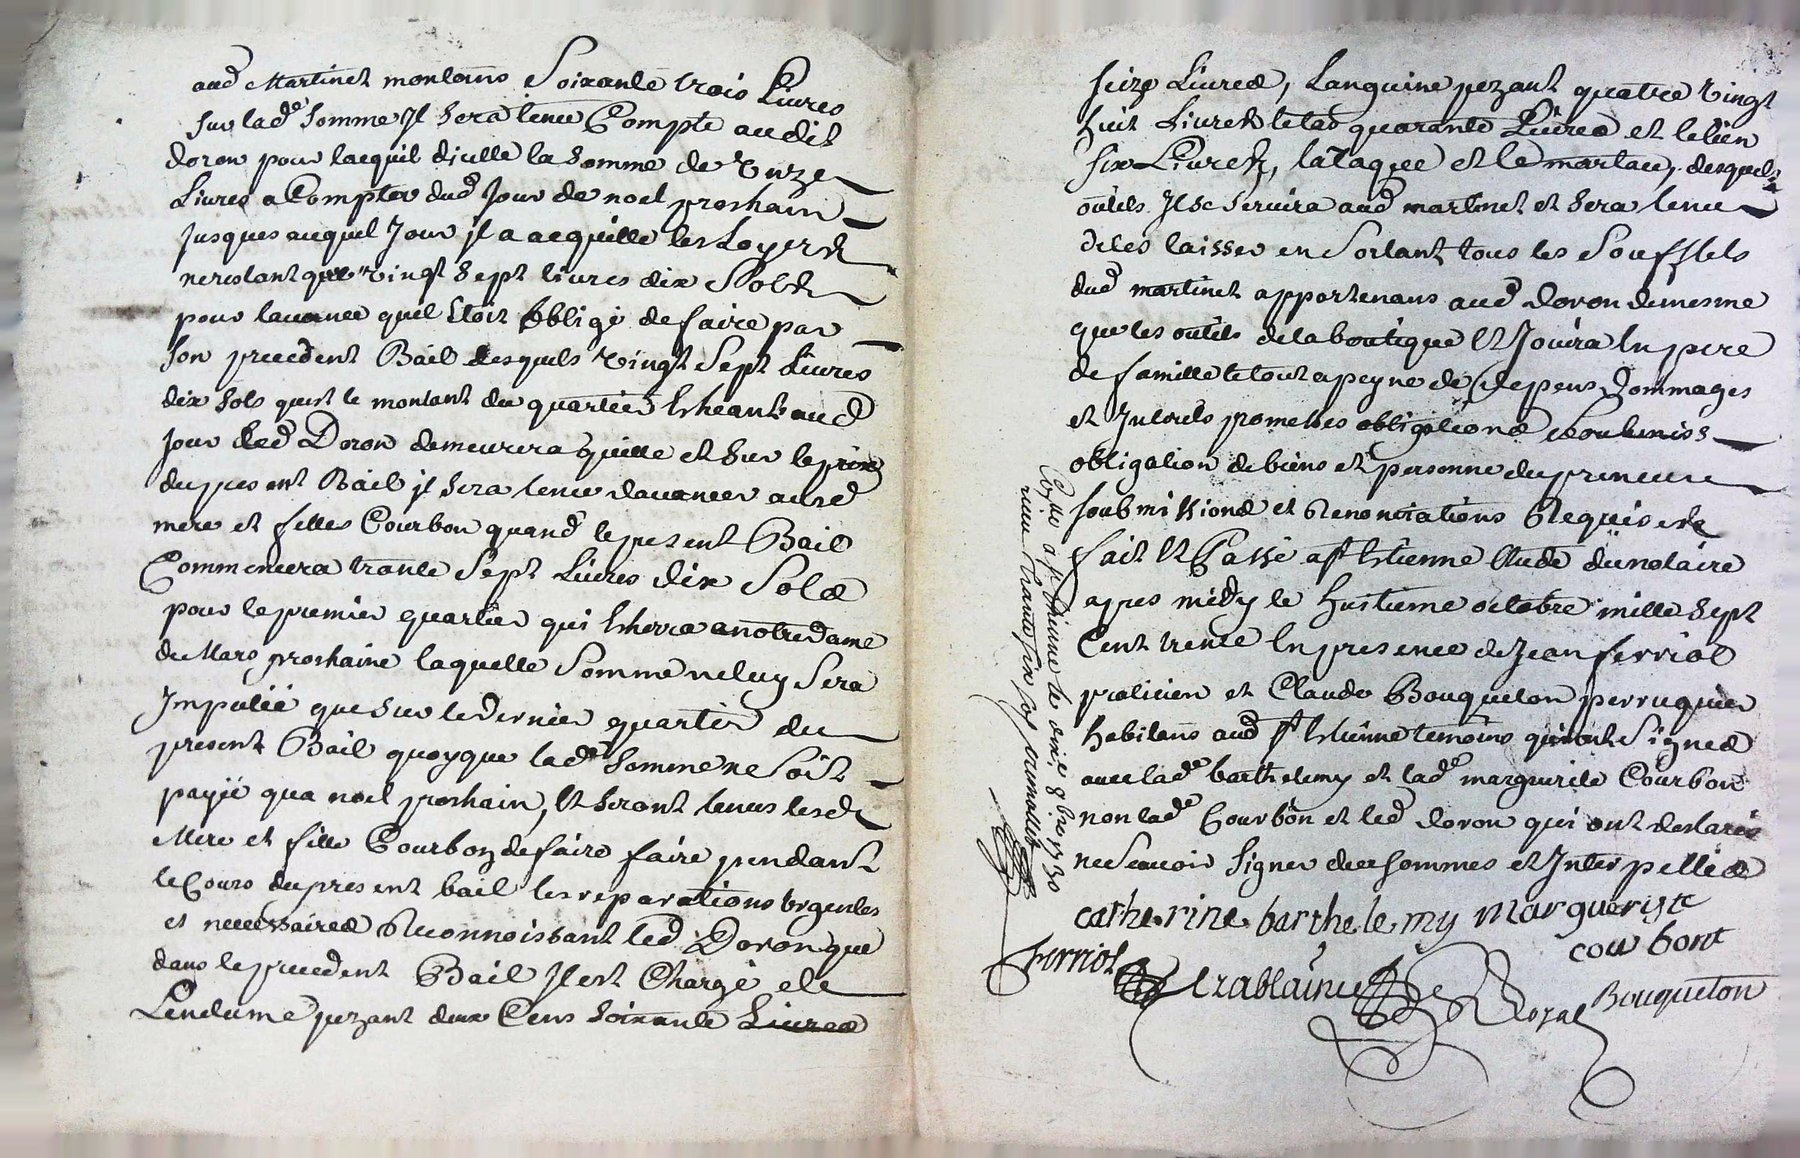 aud Martinet montans Soixante trois Livres
Sur lade Somme Il Sera tenu Compte audit
doron pour lacquil dicelle la Somme de Unze
Livres a Compter dud Jour de noel prochain
Jusques auquel Jour il a acquitté les Loyers
nerestant que vingt Sept livres dix Sols
pour lavance quil Etoit obligé de faire par
Son precedent Bail desquels vingt Sept Livres
dix Sols quest le montant du quartier Echeant aud
Jour led Doron demeurera quitte et Sur le prix
du present Bail il Sera tenu davancer ausd
mere et filles Courbon quand le present Bail
Commencera trante Sept Livres dix Sols
pour le premier quartier qui Echerra a notre dame
de Mars prochaine laquelle Somme ne luy Sera
Imputée que Sur le dernier quartier du
present Bail quoyque lade Somme ne Soit
payée qua noel prochain, Et Seront tenus lesd
Mere et fille Courbon de faire faire pendant
le Cours du present bail les reparations Urgentes
et necessaires Reconnoissant led Doron que
dans le precedent Bail Il est Chargé de
Lenclume pezant deux Cens Soixante Livres
Seize Livres, Languine pezant quatre vingt
huit Livres le tas quarante Livres et le lien
Six Livres, la taque et le martau, desquels
outils Il Se Servira aud martinet et Sera tenu
de les laisser en Sortant tous les Soufflets
dud martinet appartenans aud doron de mesme
que les outils de la boutique Et Jouira En pere
de famille le tout a peyne de depens, dommages
et Interets promesses obligations Soubmiss
obligation de biens et personne du preneur
Soubmissions et Renontiations Requises
fait Et Passé a St Etienne Etude du notaire
apres midy le huitieme octobre mille Sept
Cent trente En presence de Jean ferriol
praticien et Claude Bouqueton perruquier
habitans aud St Etienne temoins qui ont Signes
avec lade barthelemy et lade marguerite Courbon
non lade Courbon et led doron qui ont declarés
ne Scavoir Signer de ce Sommes et Interpellés
Cole a St Etienne le dixe 8bre 1730
reçu trante six sols
catherine barthelemy Marguerite
cour bont
Ferriol
Bouqueton